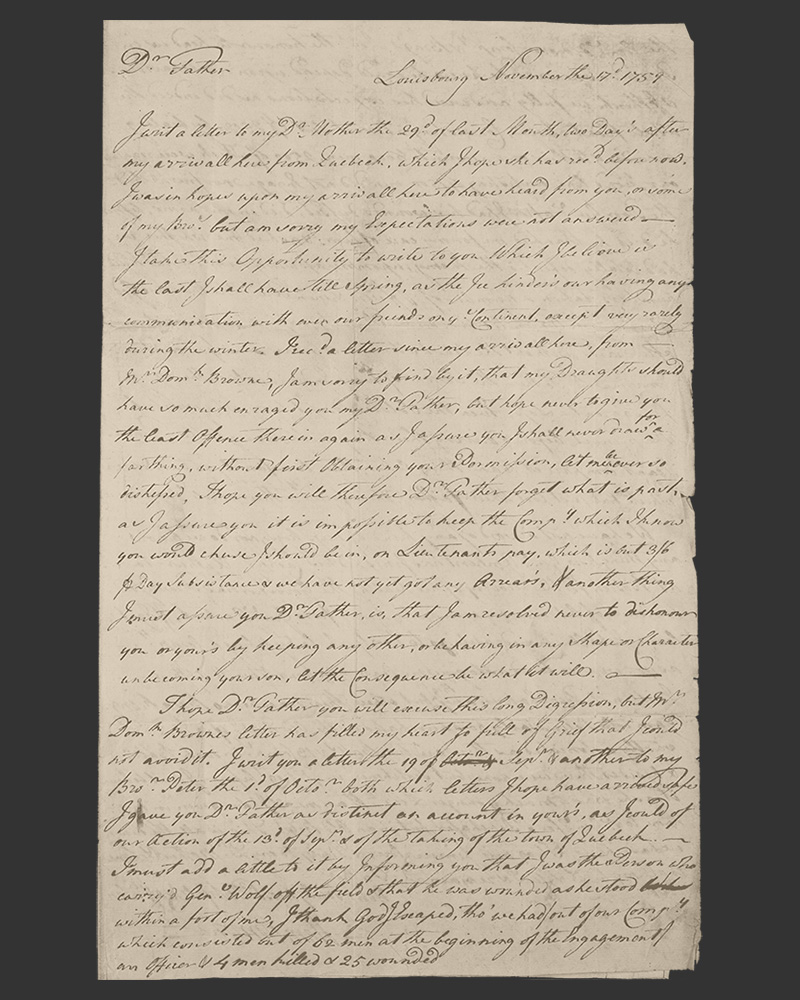 Dr. Father
Louisbourg November the 17d. 1759
I writ a letter to my Dr. Mother the 29d. of last Month, two Day's after
my arrivall here from Quebeck, which I hope she has recd. before now.
I was in hopes upon my arrivall here to have heard from you, or some
of my Brors. but am sorry my Expectations were not answered —
I take this Opportunity to write to you Which I believe is
the last I shall have till Spring, as the Ice hinder's our having any
communication with even our friends on ye. Continent, except very rarely
during the winter. I recd. a letter since my arrivall here, from —
Mr. Domk. Browne, I am sorry to find by it, that my Draughts should
have so much enraged you my Dr. Father, but hope never to give you
the least Offence therein again as I assure you I shall never draw for a
farthing, without first Obtaining your Permission, let me be ever so
distressed, I hope you will therefore Dr. Father forget what is past,
as I assure you it is impossible to keep the Compy. which I know
you would chuse I should be in, on Lieutenants pay, which is but 3/6
⅌ Day Subsistance & we have not yet got any Arrear's, & another thing
I must assure you Dr. Father, is, that I am resolved never to dishonour
you or your's by keeping any other, or behaving in any Shape or Character
unbecoming your son, let the Consequence be what it will. —
I hope Dr. Father you will excuse this long Digression, but Mr.
Domk. Brownes letter has filled my heart so full of Grief that I could
not avoid it. I writ you a letter the 19 of Sepr. & another to my
Bror. Peter the 1d. of Octor. both which letters I hope have arrived safe
I gave you Dr. Father as distinct an account in your's, as I could of
our Action of the 13d. of Sepr. & of the taking of the town of Quebeck. —
I must add a little to it by Informing you that I was the Person who
carry'd Genl. Wolf off the field & that he was wounded as he stood
within a foot of me, I thank God I Escaped, tho' we had out of our Compy.
which consisted but of 62 men at the beginning of the Engagement
an Officer & 4 men killed & 25 wounded